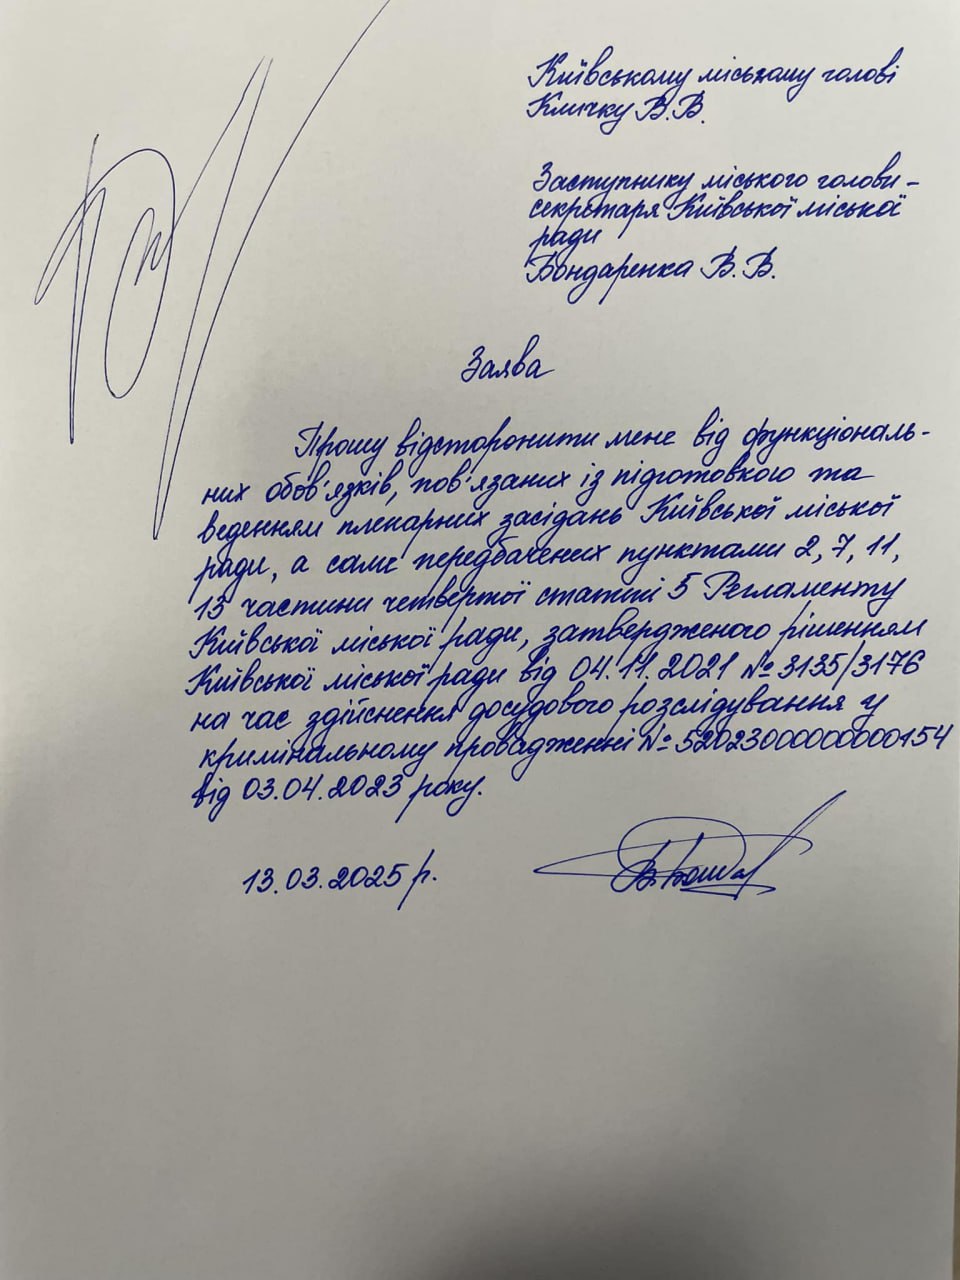 Київському міському голові
Кличку В.В.
Заступнику міського голови –
секретаря Київської міської
ради
Бондаренка В.В.
Заява
Прошу відсторонити мене від функціональ-
них обов'язків, пов'язаних із підготовкою та
веденням пленарних засідань Київської міської
ради, а саме передбачених пунктами 2, 7, 11,
13 частини четвертої статті 5 Регламенту
Київської міської ради, затвердженого рішенням
Київської міської ради від 04.11.2021 № 3135/3176
на час здійснення досудового розслідування у
кримінальному провадженні № 52023000000000154
від 03.04.2023 року.
13.03.2025 р.